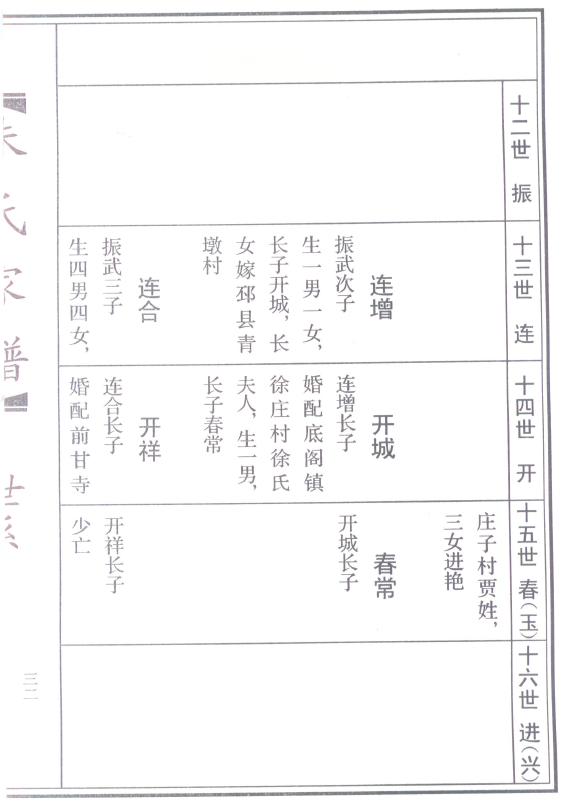 十二世 振
十三世 连
连增
振武次子
生一男一女，
长子开城，长
女嫁邳县青
墩村
连合
振武三子
生四男四女，
十四世 开
开城
连增长子
婚配底阁镇
徐庄村徐氏
夫人，生一男，
长子春常
开祥
连合长子
婚配前甘寺
十五世 春(玉)
庄子村贾姓，
三女进艳
春常
开城长子
开祥长子
少亡
十六世 进(兴)
朱氏家谱
世系
三二